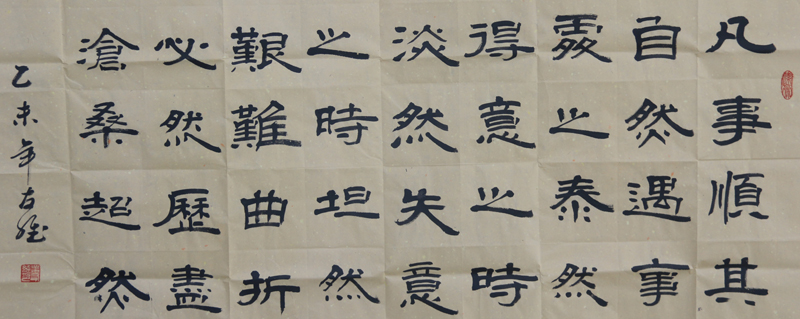 凡事順其
自然遇事
處之泰然
得意之時
淡然失意
之時坦然
艱難曲折
必然歷盡
滄桑超然
乙未年